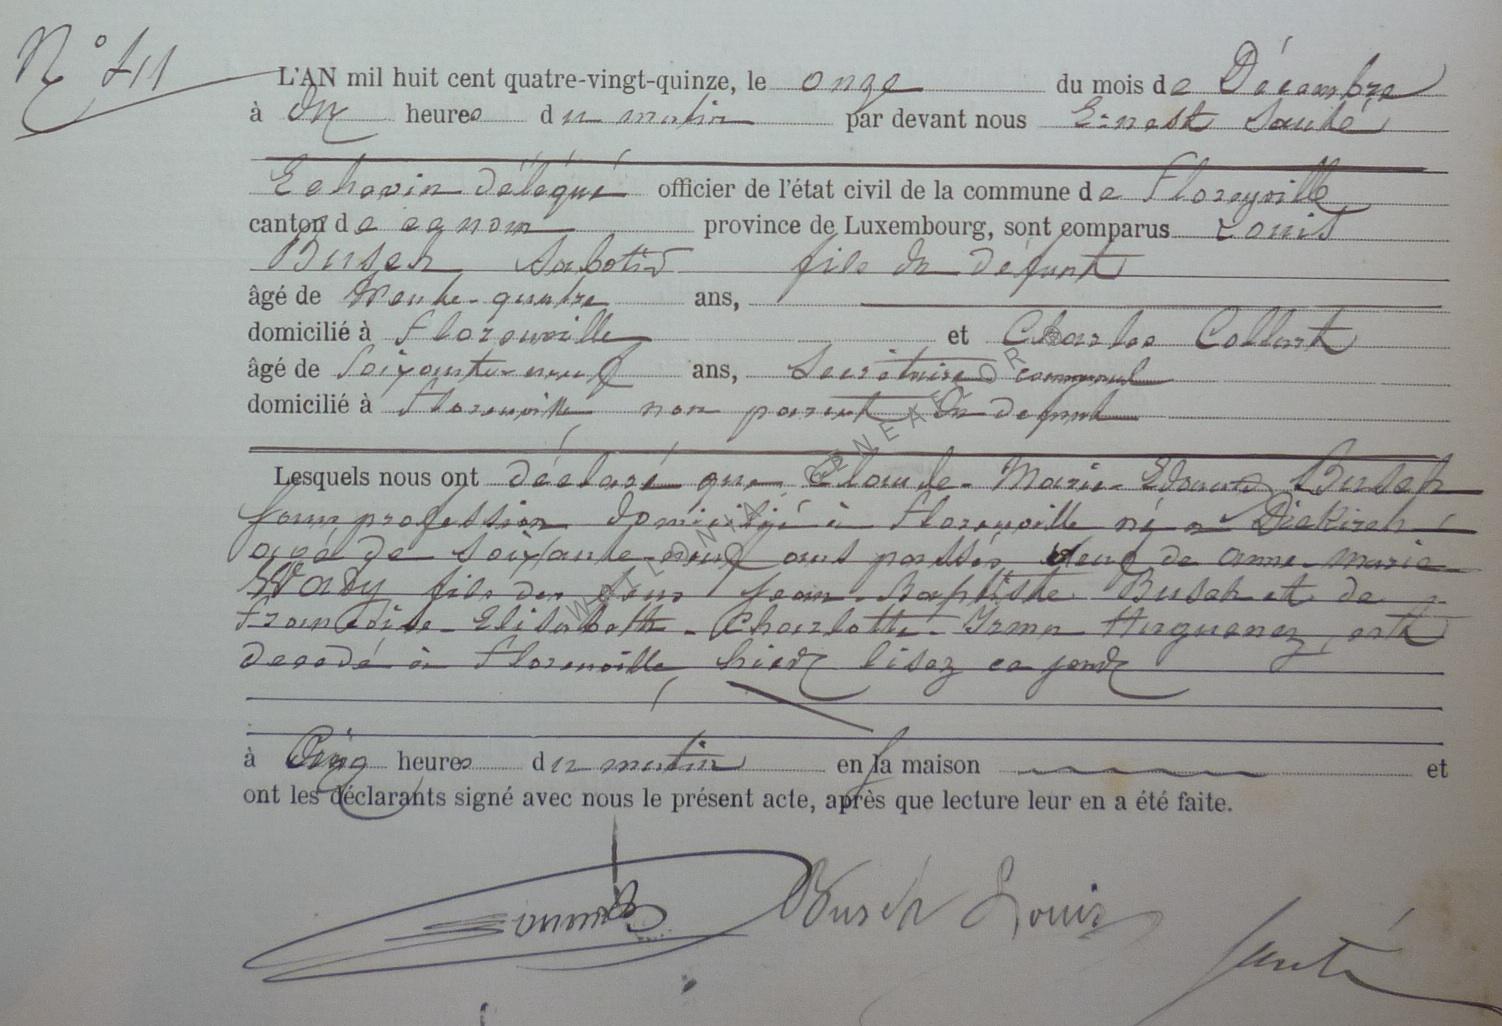 N° 411
L'AN mil huit cent quatre-vingt-quinze, le onze du mois de Décembre
à dix heures du matin par devant nous Ernest Santé
Echevin délégué officier de l'état civil de la commune de Florenville
canton de ce nom province de Luxembourg, sont comparus Louis
Busch Sabotier fils du défunt
âgé de trente-quatre ans,
domicilié à Florenville et Charles Collart
âgé de soixante-neuf ans, Secrétaire communal
domicilié à Florenville non parent du défunt
Lesquels nous ont déclaré que Claude-Marie-Edouard Busch
sans profession domicilié à Florenville né à Diekirch
agé de soixante-neuf ans passés veuf de Anne-Marie
Wady fils des feus Jean-Baptiste Busch et de
Françoise-Elisabeth-Charlotte-Irma Huguenez, est
decedé à Florenville hier lisez ce jour
à cinq heures du matin en sa maison et
ont les déclarants signé avec nous le présent acte, après que lecture leur en a été faite.
Busch Louis
Santé
WALLONIA GENEALOR